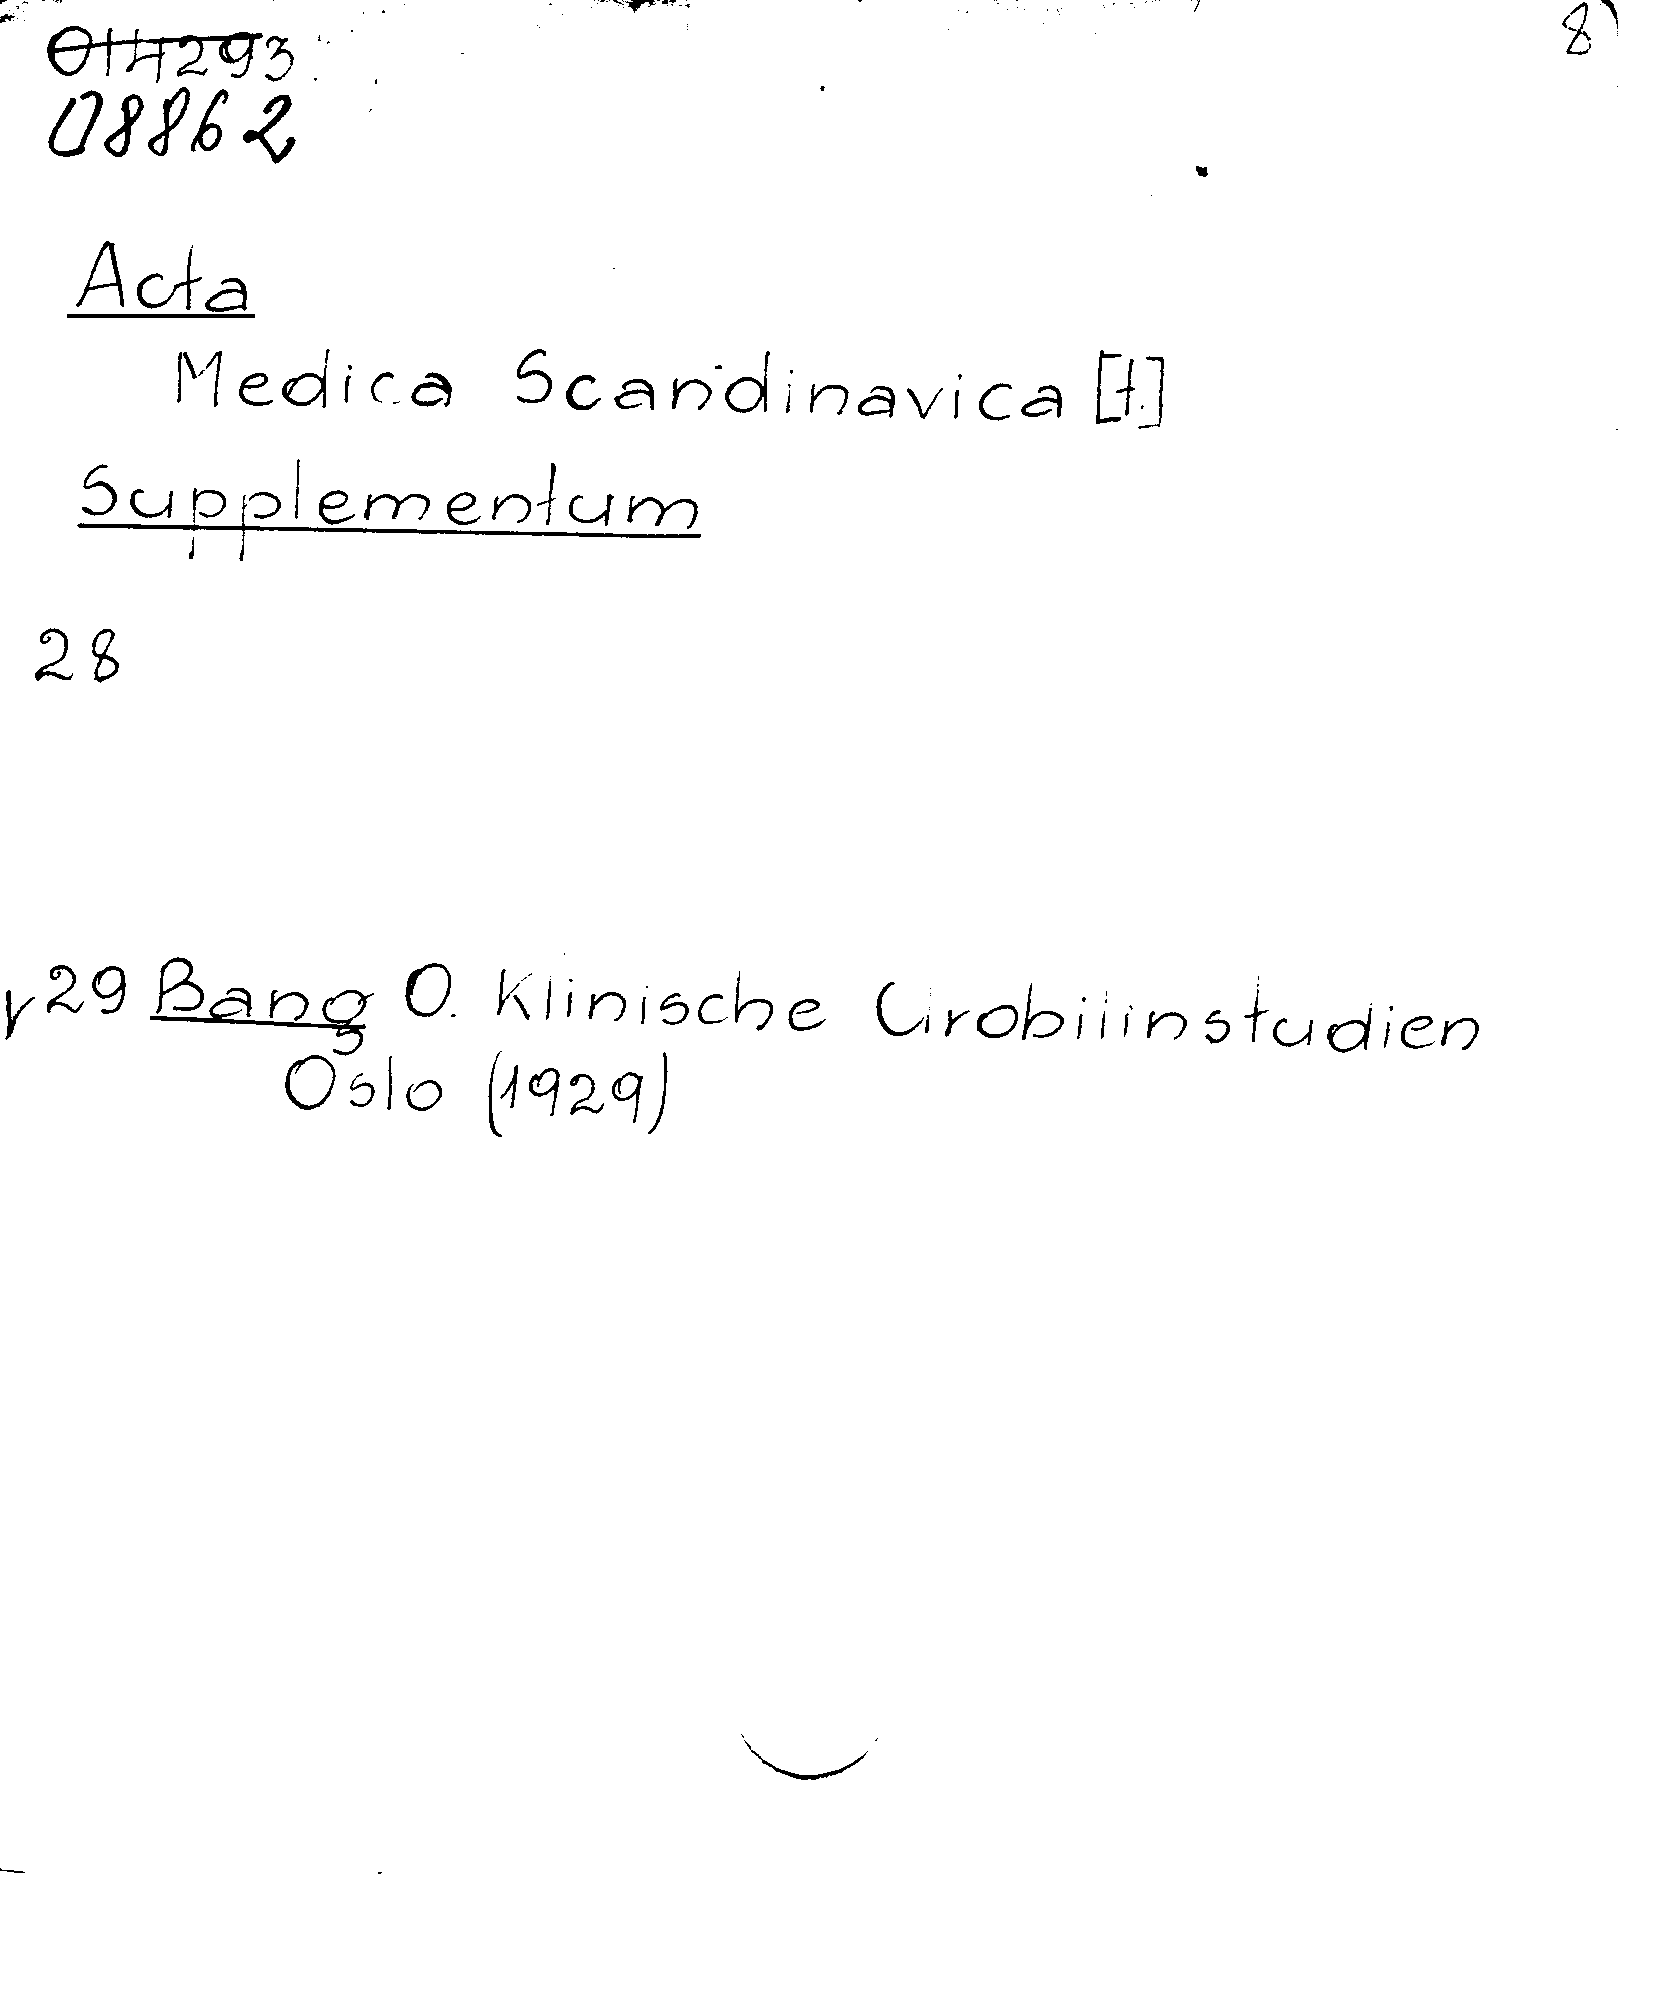 014293
8)
08862
Acta
Medica Scandinavica [t.]
Supplementum
28
v 29 Bang O. Klinische Urobilinstudien
Oslo (1929)